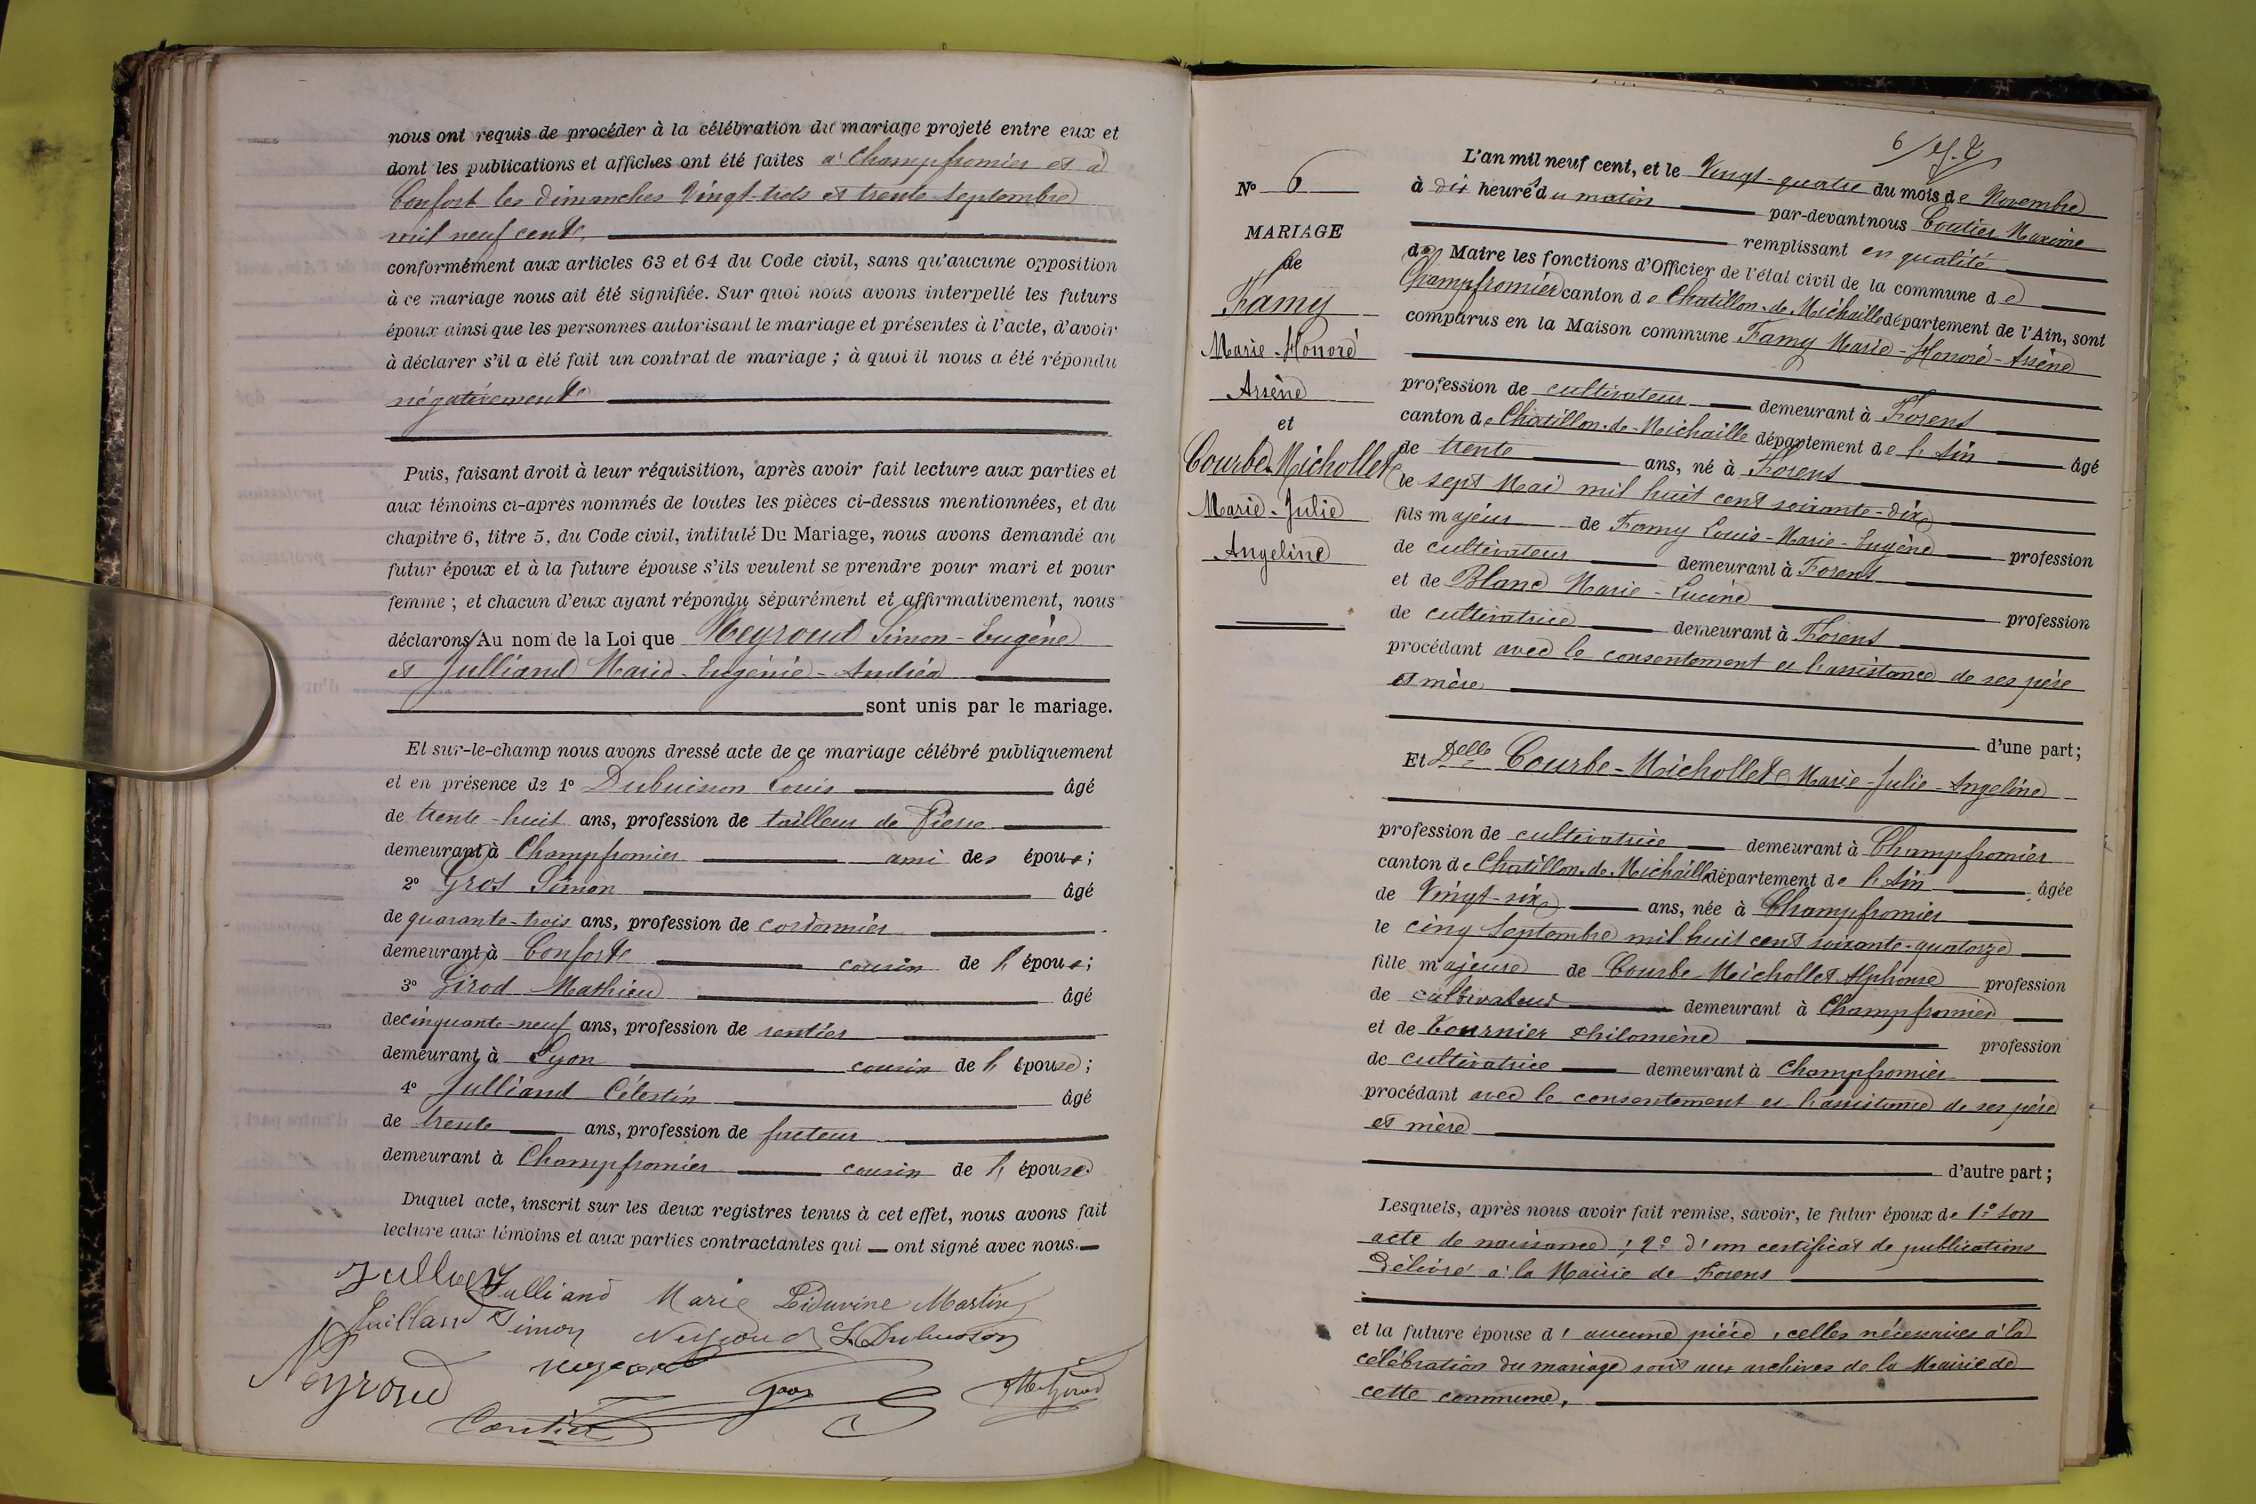 nous ont requis de procéder à la célébration du mariage projeté entre eux et
dont les publications et affiches ont été faites à Champfromier et à
Confort les dimanches Vingt-trois et trente septembre
mil neuf cent.
conformément aux articles 63 et 64 du Code civil, sans qu'aucune opposition
à ce mariage nous ait été signifiée. Sur quoi nous avons interpellé les futurs
époux ainsi que les personnes autorisant le mariage et présentes à l'acte, d'avoir
à déclarer s'il a été fait un contrat de mariage ; à quoi il nous a été répondu
négativement
Puis, faisant droit à leur réquisition, après avoir fait lecture aux parties et
aux témoins ci-après nommés de toutes les pièces ci-dessus mentionnées, et du
chapitre 6, titre 5, du Code civil, intitulé Du Mariage, nous avons demandé au
futur époux et à la future épouse s'ils veulent se prendre pour mari et pour
femme ; et chacun d'eux ayant répondu séparément et affirmativement, nous
déclarons Au nom de la Loi que Neyroud Simon-Eugène
et Julliand Marie-Eugénie-Andréa
sont unis par le mariage.
Et sur-le-champ nous avons dressé acte de ce mariage célébré publiquement
et en présence de 1° Dubuisson Louis âgé
de trente-huit ans, profession de tailleur de Pierre
demeurant à Champfromier ami des époux;
2° Gros Simon âgé
de quarante-trois ans, profession de cordonnier
demeurant à Confort cousin de l'époux;
3° Girod Mathieu âgé
de cinquante-neuf ans, profession de rentier
demeurant à Lyon cousin de l'épouse;
4° Julliand Célestin âgé
de trente ans, profession de facteur
demeurant à Champfromier cousin de l'épouse
Duquel acte, inscrit sur les deux registres tenus à cet effet, nous avons fait
lecture aux témoins et aux parties contractantes qui ont signé avec nous.
Julliand Marie Liduvine Martin
Simon Neyroud L Dubuisson
Neyroud Gros M. Girod
Coutier
6
N° 6
MARIAGE
de
Famy
Marie-Honoré
Arsène
et
Courbe-Michollet
Marie-Julie
Angeline
L'an mil neuf cent, et le Vingt-quatre du mois de Novembre
à dix heures du matin par-devant nous Coutier Maxime
remplissant en qualité
de Maire les fonctions d'Officier de l'état civil de la commune de
Champfromier canton de Chatillon-de-Michaille département de l'Ain, sont
comparus en la Maison commune Famy Marie-Honoré-Arsène
profession de cultivateur demeurant à Forens
canton de Chatillon-de-Michaille département de l'Ain âgé
de trente ans, né à Forens
le sept Mai mil huit cent soixante-dix
fils majeur de Famy Louis-Marie-Eugène profession
de cultivateur demeurant à Forens
et de Blanc Marie-Lucine profession
de cultivatrice demeurant à Forens
procédant avec le consentement et l'assistance de ses père
et mère
d'une part;
Et Delle Courbe-Michollet Marie-Julie-Angeline
profession de cultivatrice demeurant à Champfromier
canton de Chatillon-de-Michaille département de l'Ain âgée
de Vingt-six ans, née à Champfromier
le cinq Septembre mil huit cent soixante-quatorze
fille majeure de Courbe Michollet Alphonse profession
de cultivateur demeurant à Champfromier
et de Tournier Philomène profession
de cultivatrice demeurant à Champfromier
procédant avec le consentement et l'assistance de ses père
et mère
d'autre part;
Lesquels, après nous avoir fait remise, savoir, le futur époux de 1° son
acte de naissance ; 2° d'un certificat de publications
délivré à la Mairie de Forens
et la future épouse d'aucune pièce, celles nécessaires à la
célébration du mariage sont aux archives de la Mairie de
cette commune.